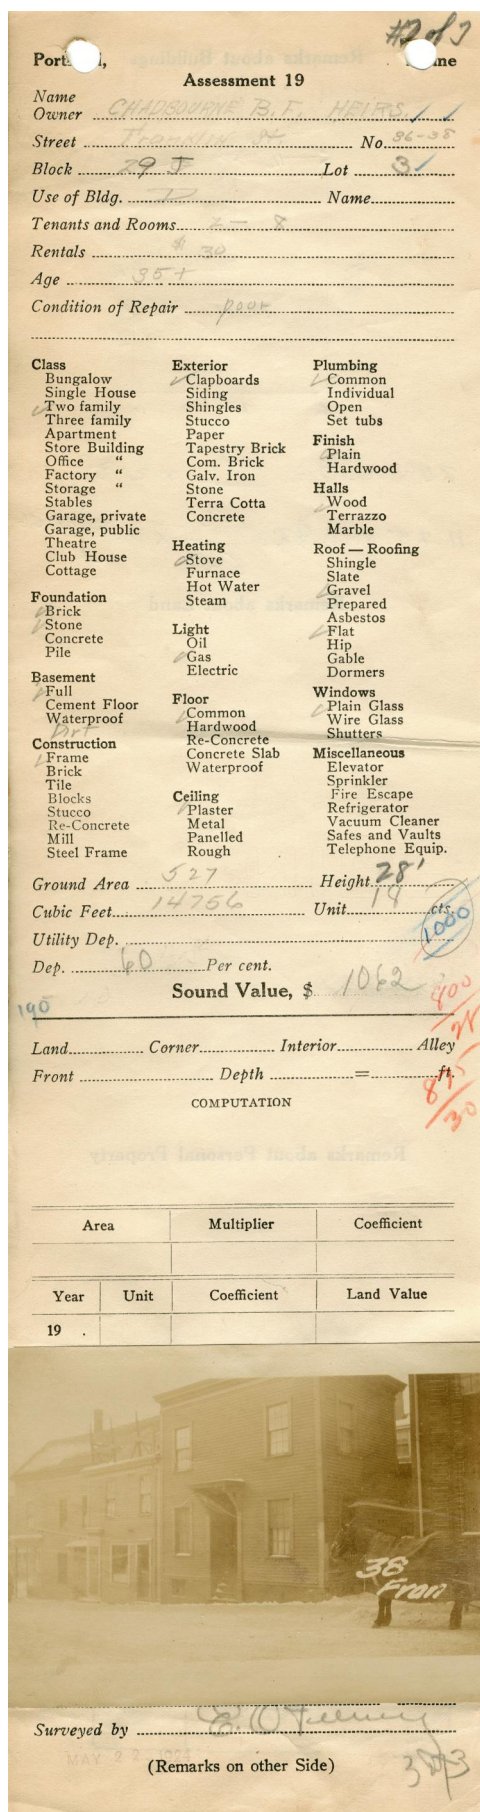 #2 of 3
Portland, Maine
Assessment 19
Name
Owner CHADBOURNE B.F. HEIRS.
Street Franklin St No. 36-38
Block 29 J Lot 3
Use of Bldg. D Name
Tenants and Rooms 2 - 8
Rentals $ 30
Age 35+
Condition of Repair poor
Class
Bungalow
Single House
Two family
Three family
Apartment
Store Building
Office "
Factory "
Storage "
Stables
Garage, private
Garage, public
Theatre
Club House
Cottage
Foundation
Brick
Stone
Concrete
Pile
Basement
Full
Cement Floor
Waterproof
Dirt
Construction
Frame
Brick
Tile
Blocks
Stucco
Re-Concrete
Mill
Steel Frame
Exterior
Clapboards
Siding
Shingles
Stucco
Paper
Tapestry Brick
Com. Brick
Galv. Iron
Stone
Terra Cotta
Concrete
Heating
Stove
Furnace
Hot Water
Steam
Light
Oil
Gas
Electric
Floor
Common
Hardwood
Re-Concrete
Concrete Slab
Waterproof
Ceiling
Plaster
Metal
Panelled
Rough
Plumbing
Common
Individual
Open
Set tubs
Finish
Plain
Hardwood
Halls
Wood
Terrazzo
Marble
Roof — Roofing
Shingle
Slate
Gravel
Prepared
Asbestos
Flat
Hip
Gable
Dormers
Windows
Plain Glass
Wire Glass
Shutters
Miscellaneous
Elevator
Sprinkler
Fire Escape
Refrigerator
Vacuum Cleaner
Safes and Vaults
Telephone Equip.
Ground Area 527 Height 28'
Cubic Feet 14756 Unit 18 cts.
1000
Utility Dep.
Dep. 60 Per cent.
Sound Value, $ 1062
190
800
875/30
Land Corner Interior Alley
Front Depth = ft.
COMPUTATION
Area Multiplier Coefficient
Year Unit Coefficient Land Value
19 .
38
Fran
Surveyed by
MAY 22 1924
(Remarks on other Side)